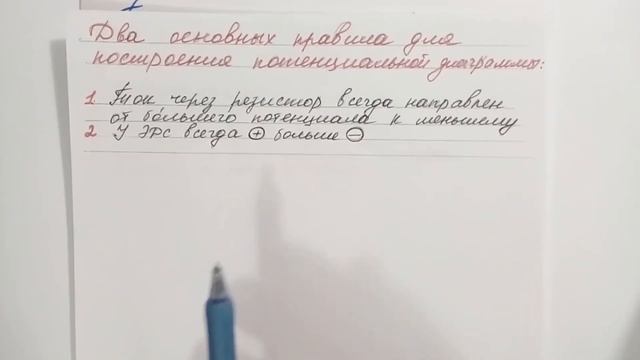 Два основных правила для
построения потенциальной диаграммы:
1 Ток через резистор всегда направлен
от большего потенциала к меньшему
2 У ЭДС всегда ⊕ больше ⊖